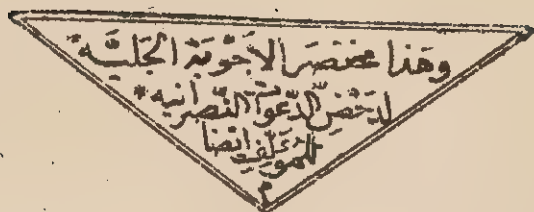 وهذا مختصر الاجوبة الجليَّة
لدحض الدعوات النصرانيه *
للمؤلف ايضا
م